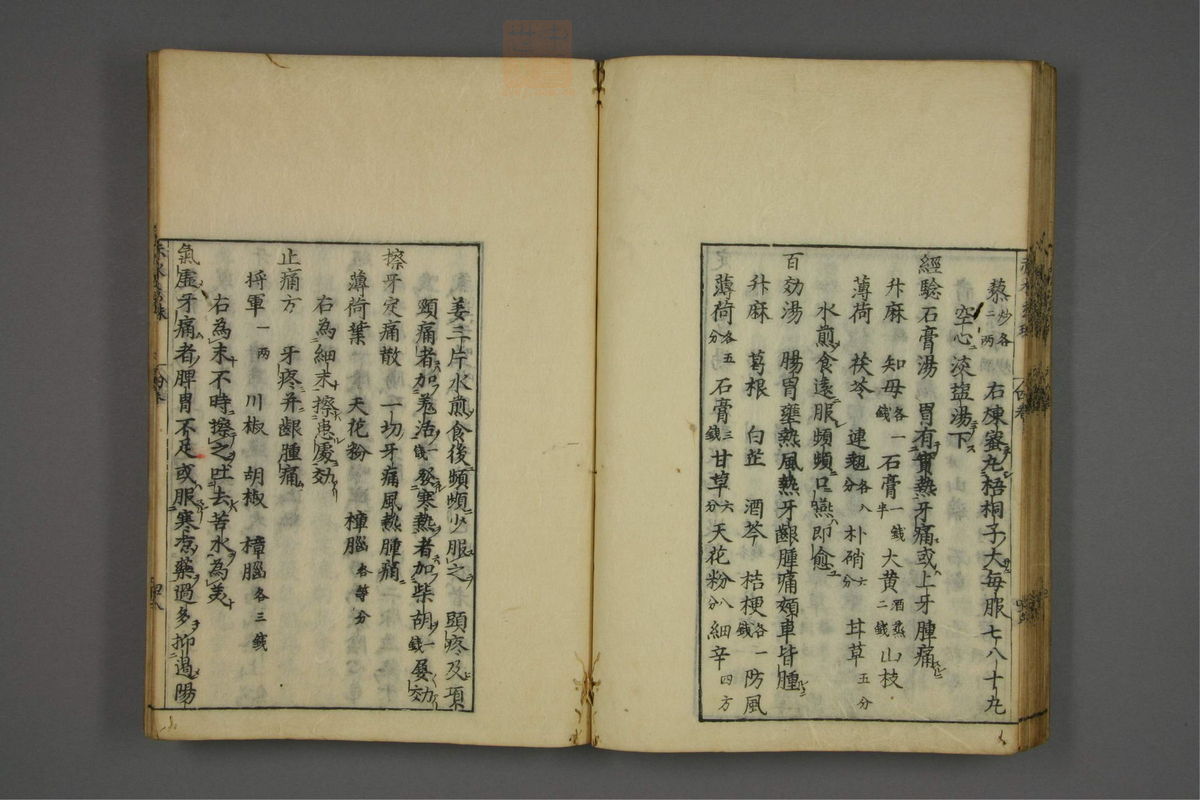 藜炒各二両　右煉蜜丸梧桐子大每服七八十丸
空心淡塩湯下
經驗石膏湯　胃有實熱牙痛或上牙腫痛
升麻　知母各一錢　石膏一錢半　大黃酒蒸二錢　山枝
薄荷　茯苓　連翹各八分　朴硝六分　甘草五分
水煎食遠服頻頻口嚥即愈
百効湯　腸胃壅熱風熱牙齦腫痛頰車皆腫
升麻　葛根　白芷　酒芩　桔梗各一錢　防風
薄荷各五分　石膏三錢　甘草六分　天花粉八分　細辛四方
姜三片水煎食後頻頻少服之　頭疼及項
頸痛者加羗活一錢　發寒熱者加柴胡一錢　屡効
擦牙定痛散　一切牙痛風熱腫痛
薄荷葉　天花粉　樟腦各等分
右為細末擦患處効
止痛方　牙疼并齦腫痛
将軍一両　川椒　胡椒　樟腦各三錢
右為末不時擦之吐去苦水為美
氣虛牙痛者脾胃不足或服寒凉藥過多抑遏陽